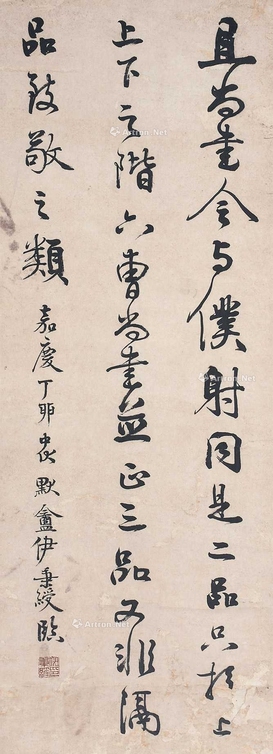 且尚書令与僕射同是二品只挍上
上下之階六曹尚書並正三品又非隔
品致敬之類
嘉慶丁卯中秋默盦伊秉綬臨
Artron.Net